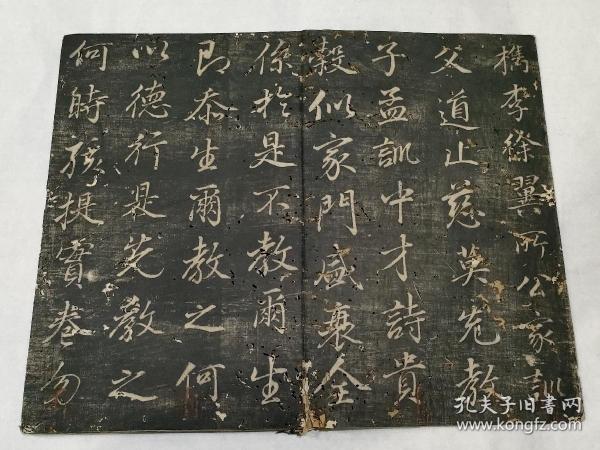 檇李徐翼所公家訓
父道止慈莫先教
子孟訓中才詩貴
穀似家門盛衰全
係於是不教爾生
即忝生爾教之何
以德行是先教之
何時孩提實勿
孔夫子旧书网
www.kongfz.com